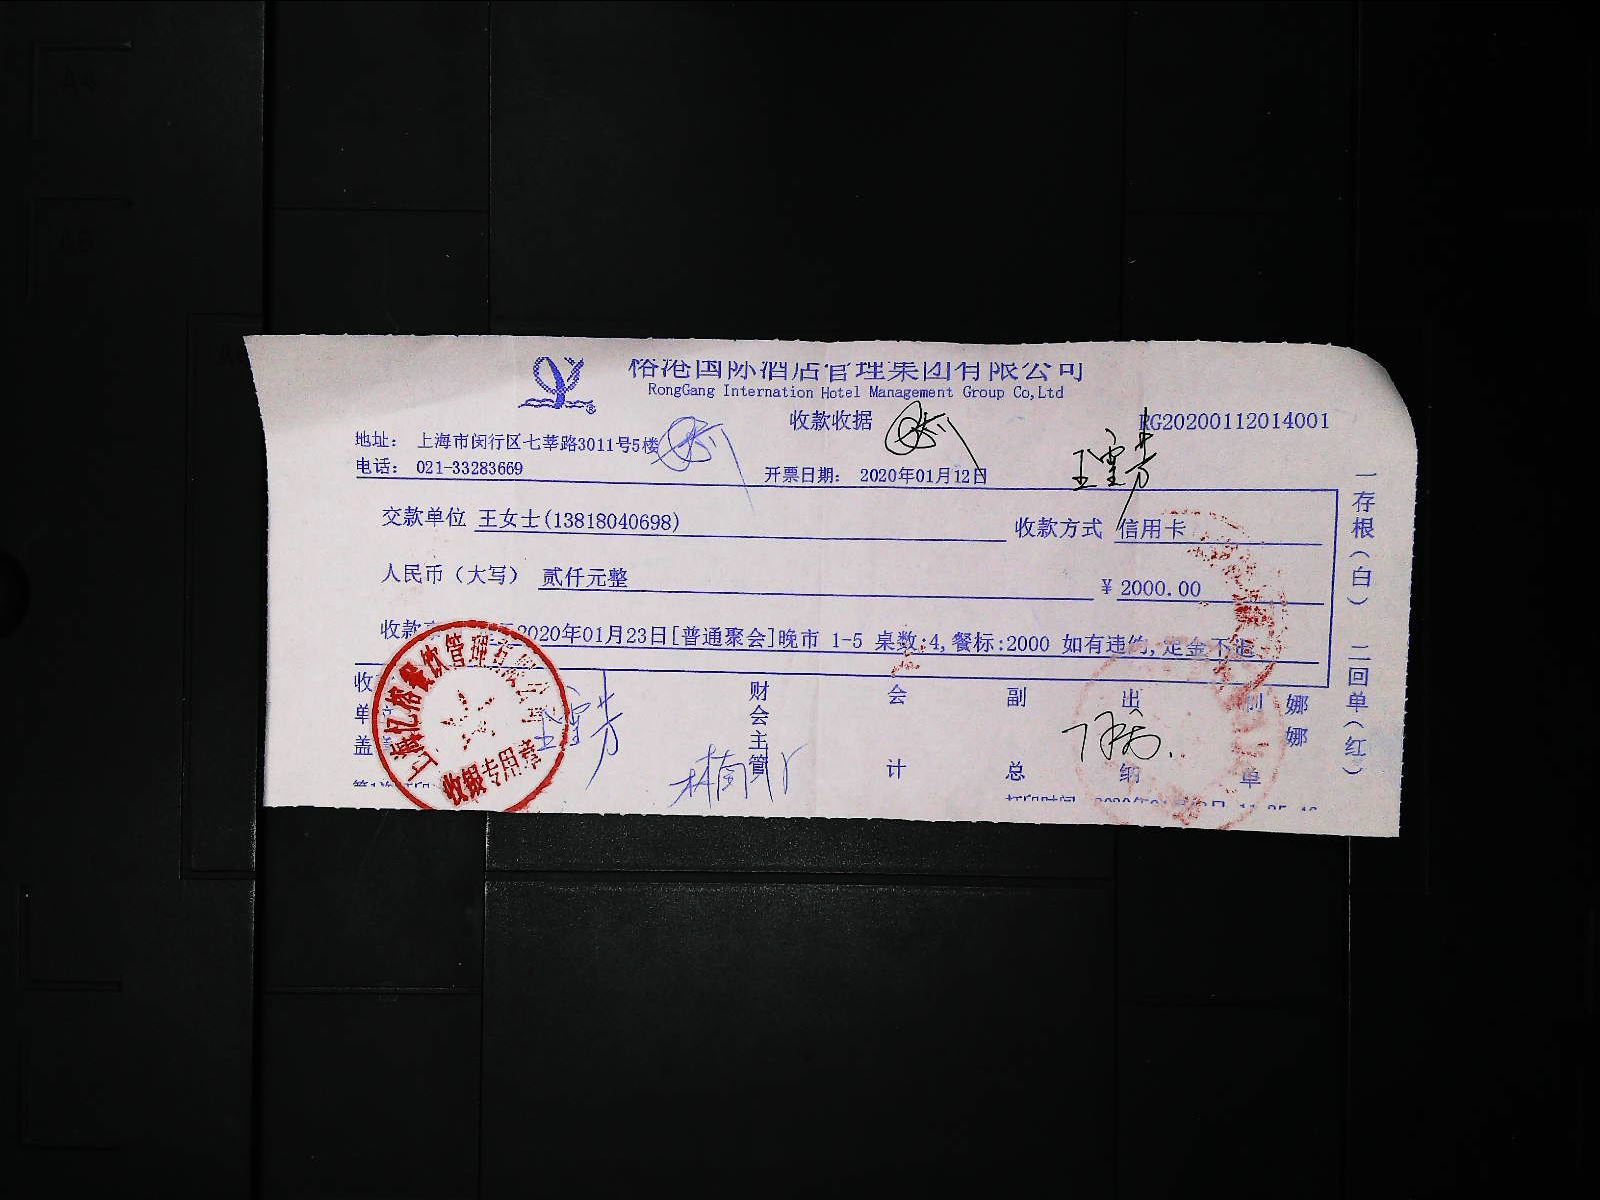 榕港国际酒店管理集团有限公司
RongGang International Hotel Management Group Co,Ltd
收款收据
RG20200112014001
地址: 上海市闵行区七莘路3011号5楼
电话: 021-33283669
开票日期: 2020年01月12日
王雲芳
交款单位 王女士(13818040698)
收款方式 信用卡
人民币(大写) 贰仟元整
¥ 2000.00
收款 2020年01月23日[普通聚会]晚市 1-5 桌数:4,餐标:2000 如有违约,定金不退
收 单 盖
上海亿榕餐饮管理有限公司
收银专用章
王雲芳
财会主管
会计
副总
出纳
制单
娜娜
一存根(白) 二回单(红)